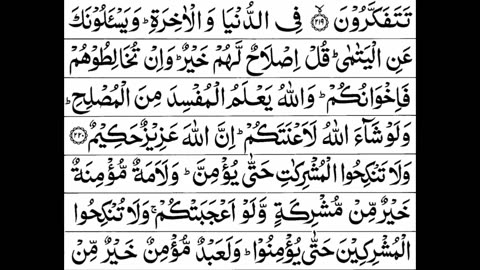 تَتَفَكَّرُوۡنَ ۙ‏﴿۲۱۹﴾ فِى الدُّنۡيَا وَالۡاٰخِرَةِ‌ؕ وَيَسۡـــَٔلُوۡنَكَ
عَنِ الۡيَتٰمٰى‌ؕ قُلۡ اِصۡلَاحٌ لَّهُمۡ خَيۡرٌ‌ؕ وَاِنۡ تُخَالِطُوۡهُمۡ
فَاِخۡوَانُكُمۡ‌ؕ وَاللّٰهُ يَعۡلَمُ الۡمُفۡسِدَ مِنَ الۡمُصۡلِحِ‌ؕ
وَلَوۡ شَآءَ اللّٰهُ لَاَعۡنَتَكُمۡ‌ؕ اِنَّ اللّٰهَ عَزِيۡزٌ حَكِيۡمٌ‏ ﴿۲۲۰﴾
وَلَا تَنۡكِحُوا الۡمُشۡرِكٰتِ حَتّٰى يُؤۡمِنَّ‌ؕ وَلَاَمَةٌ مُّؤۡمِنَةٌ
خَيۡرٌ مِّنۡ مُّشۡرِكَةٍ وَّلَوۡ اَعۡجَبَتۡكُمۡ‌ۚ وَلَا تُنۡكِحُوا
الۡمُشۡرِكِيۡنَ حَتّٰى يُؤۡمِنُوۡا‌ؕ وَلَعَبۡدٌ مُّؤۡمِنٌ خَيۡرٌ مِّنۡ